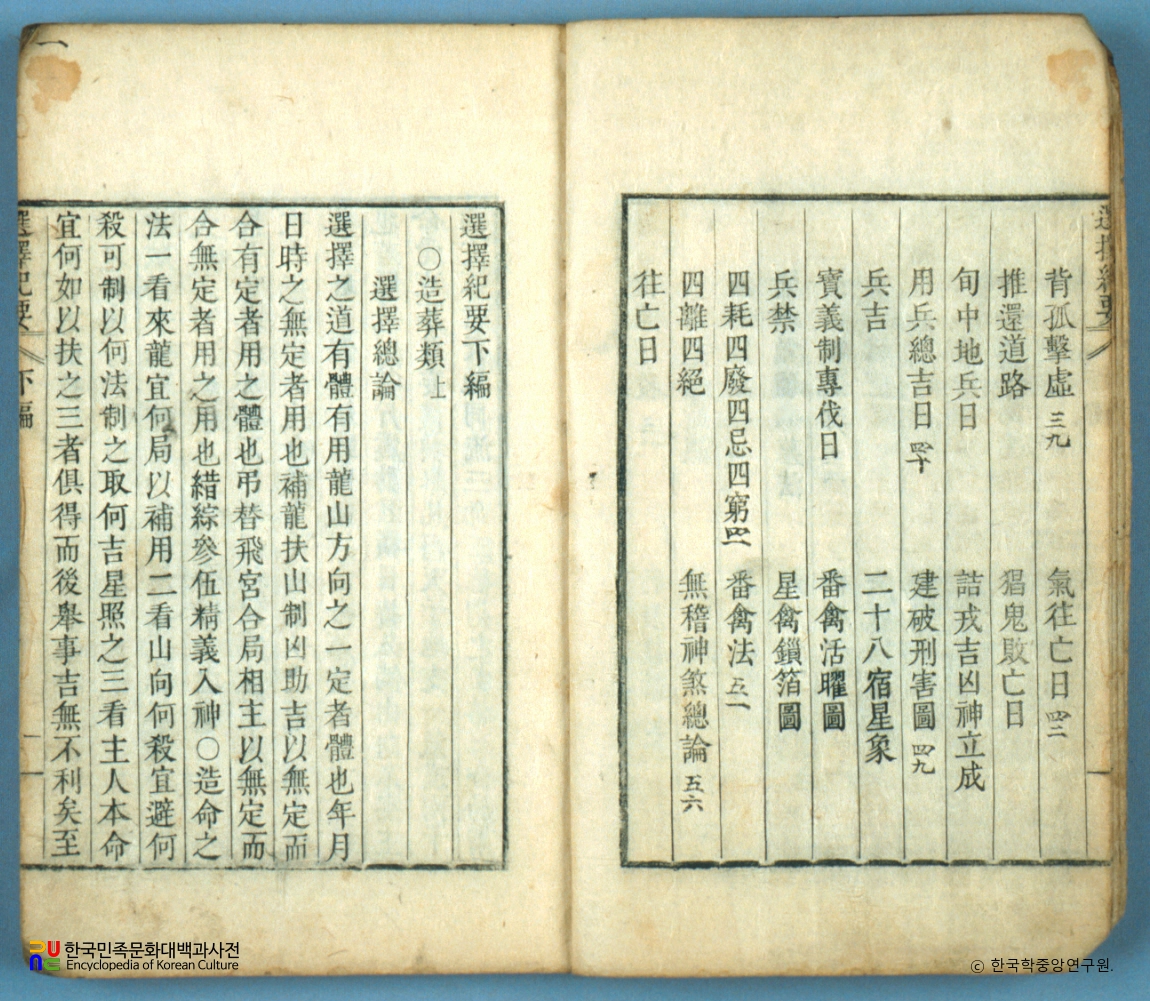 背孤擊虛 三九 氣往亡日 四二
推還道路 猖鬼敗亡日
旬中地兵日 詰戎吉凶神立成
用兵總吉日 四十 建破刑害圖 四九
兵吉 二十八宿星象
寶義制專伐日 番禽活曜圖
兵禁 星禽鎖箔圖
四耗四廢四忌四窮 四一 番禽法 五一
四離四絕 無稽神煞總論 五六
往亡日
選擇紀要下編
○造葬類 上
選擇總論
選擇之道有體有用龍山方向之一定者體也年月
日時之無定者用也補龍扶山制凶助吉以無定而
合有定者用之體也弔替飛宮合局相主以無定而
合無定者用之用也錯綜參伍精義入神○造命之
法一看來龍宜何局以補用二看山向何殺宜避何
殺可制以何法制之取何吉星照之三看主人本命
宜何如以扶之三者俱得而後舉事吉無不利矣至
選擇紀要 下編 一
한국민족문화대백과사전
Encyclopedia of Korean Culture
ⓒ 한국학중앙연구원.